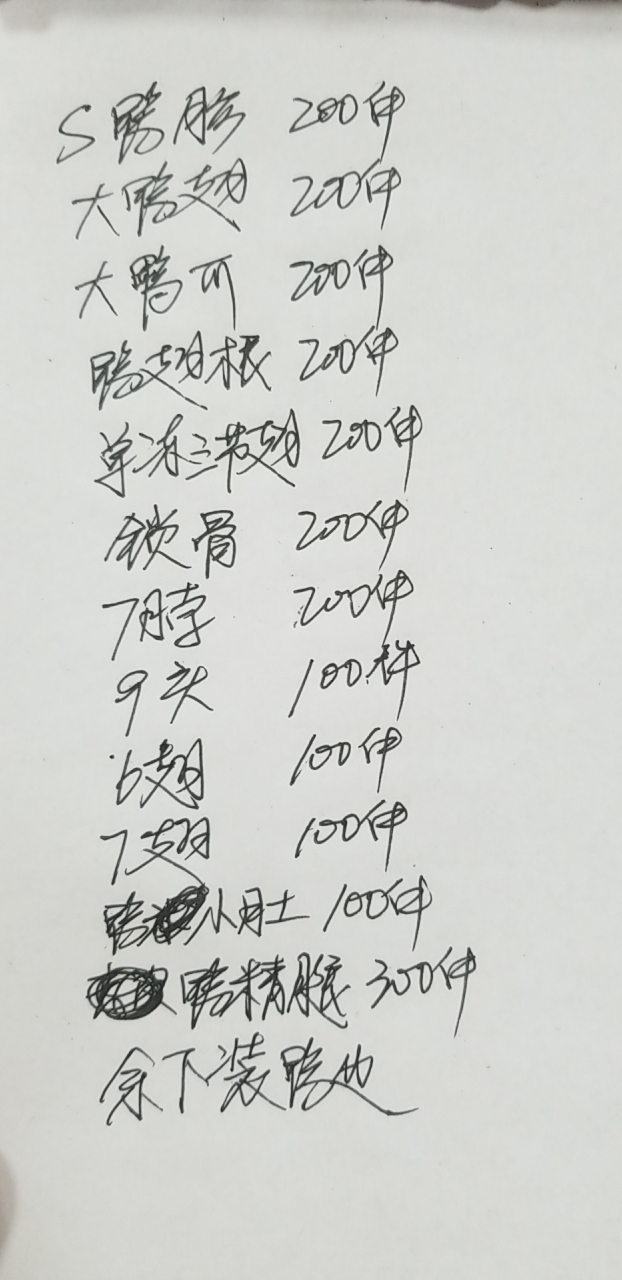 S鸭胗 200件
大鸭翅 200件
大鸭爪 200件
鸭翅根 200件
单冻三节翅 200件
锁骨 200件
7脖 200件
9头 100件
6翅 100件
7翅 100件
鸭小肚 100件
鸭精腿 300件
余下装鸭